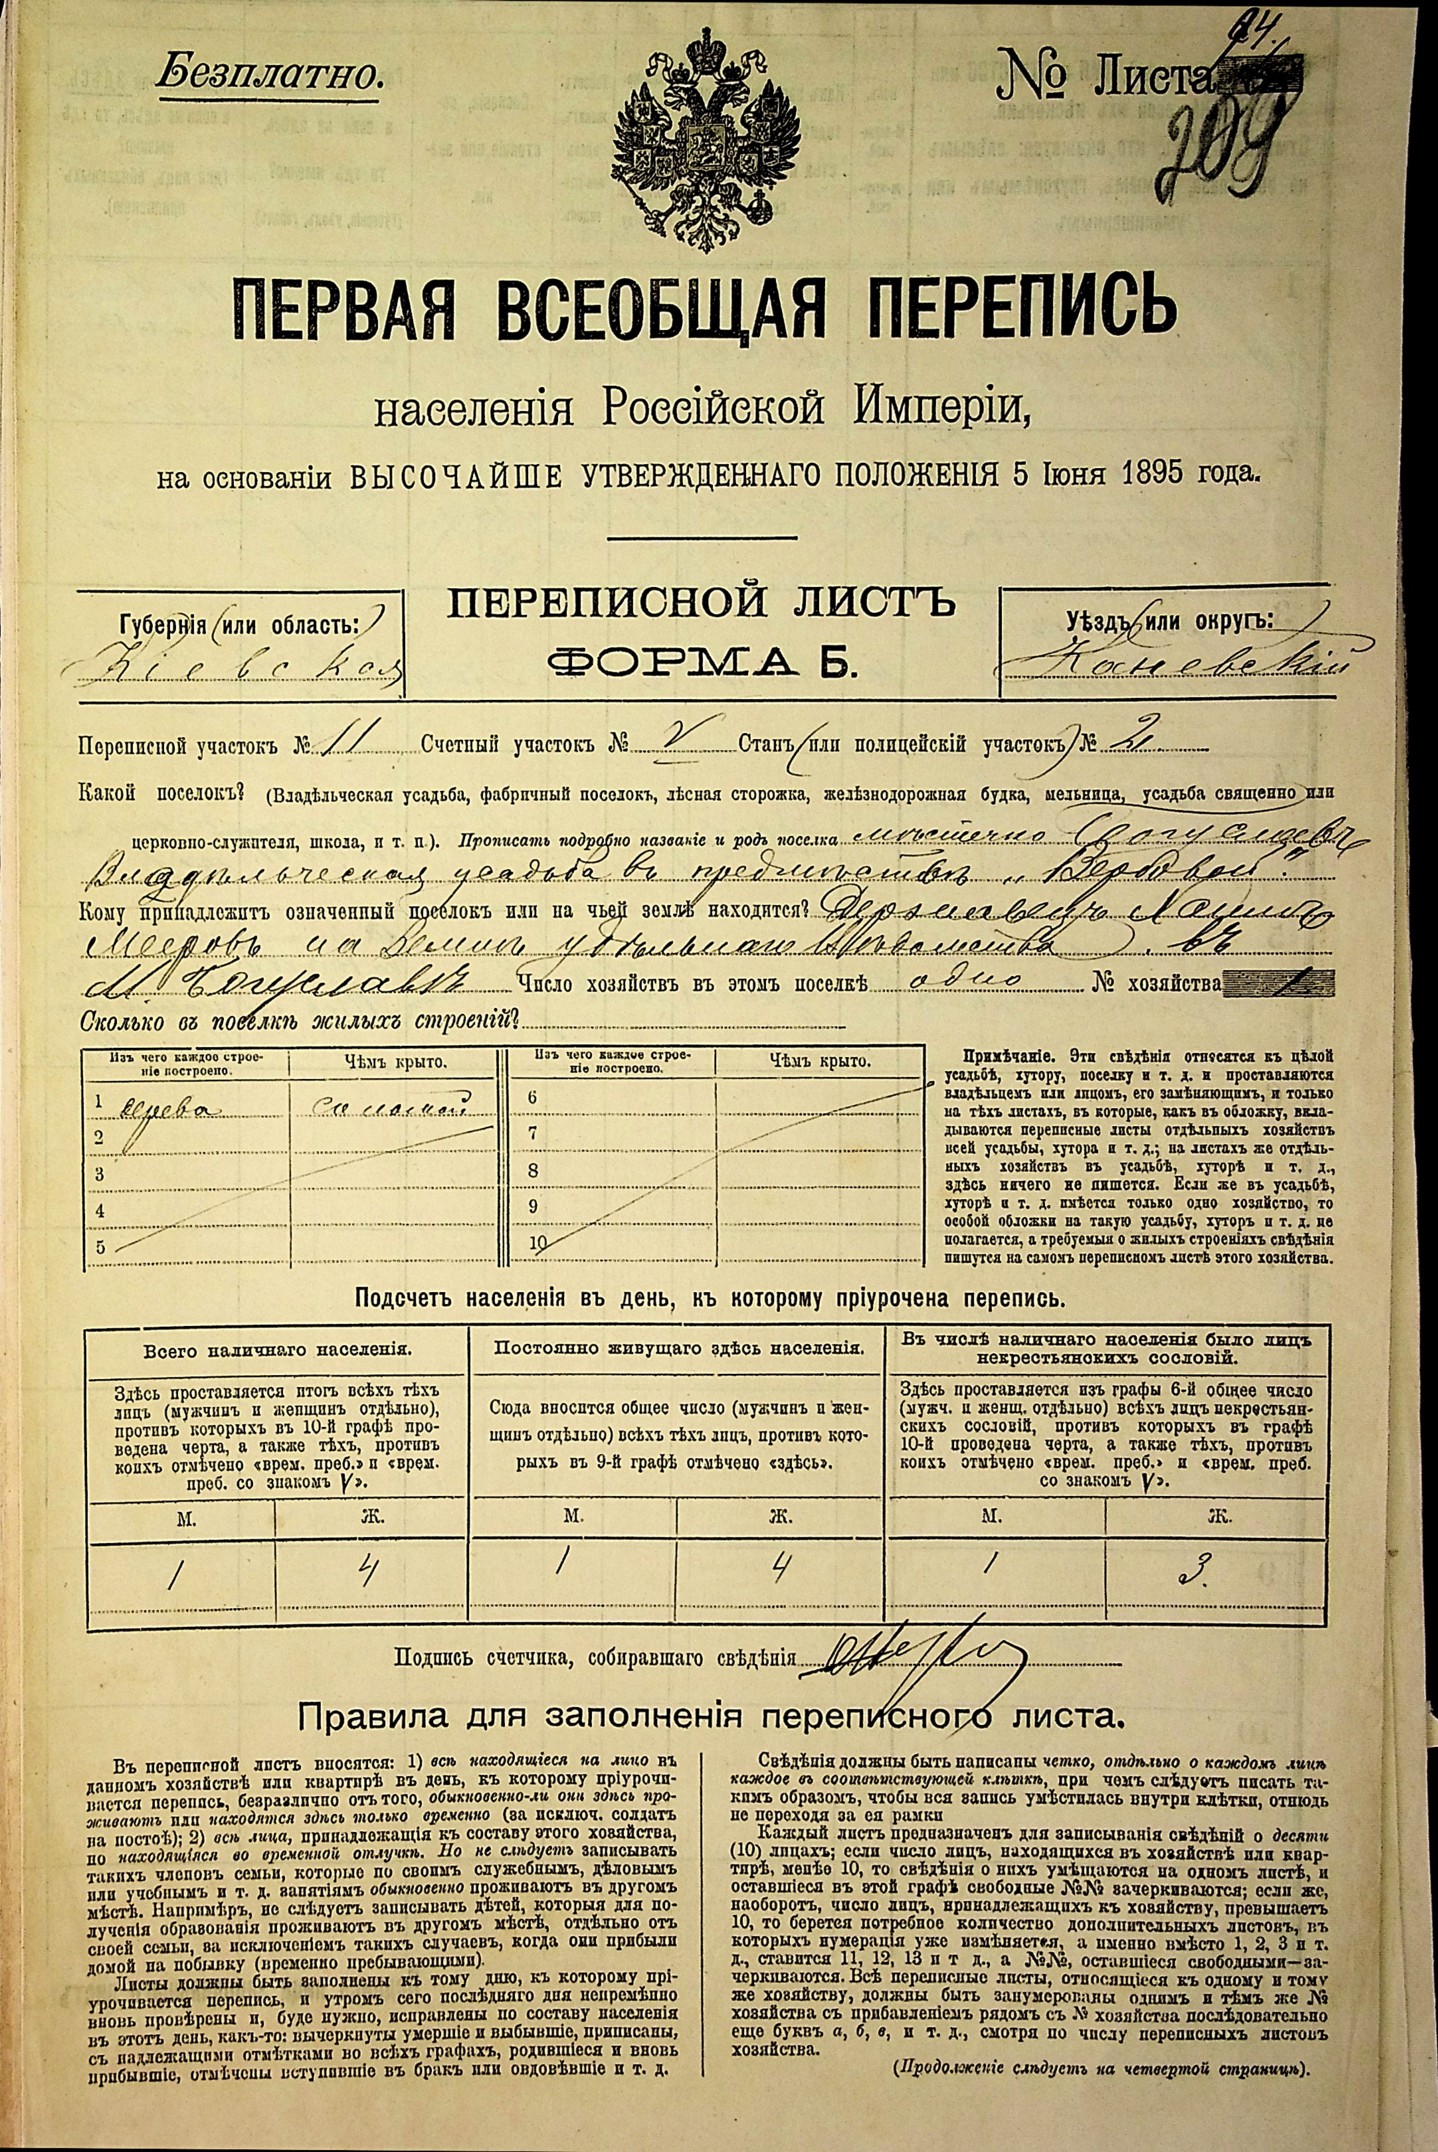 Безплатно.
№ Листа 24.
209
ПЕРВАЯ ВСЕОБЩАЯ ПЕРЕПИСЬ
населенія Россійской Имперіи,
на основаніи ВЫСОЧАЙШЕ УТВЕРЖДЕННАГО ПОЛОЖЕНІЯ 5 Іюня 1895 года.
ПЕРЕПИСНОЙ ЛИСТЪ
ФОРМА Б.
Губернія (или область:)
Кіевская
Уѣздъ (или округъ:)
Каневскій
Переписной участокъ № 11 Счетный участокъ № V Станъ (или полицейскій участокъ) № 2.
Какой поселокъ? (Владѣльческая усадьба, фабричный поселокъ, лѣсная сторожка, желѣзнодорожная будка, мельница, усадьба священно или
церковно-служителя, школа, и т. п.). Прописать подробно названіе и родъ поселка мѣстечко Богуславъ
Владѣльческая усадьба въ предмѣстьѣ „Вербовой"
Кому принадлежитъ означенный поселокъ или на чьей землѣ находится?
Мееровъ на Земли удѣльнаго Вѣдомства въ
М. Богуславѣ Число хозяйствъ въ этомъ поселкѣ одно № хозяйства 1
Сколько въ поселкѣ жилыхъ строеній?
Изъ чего каждое строеніе построено. Чѣмъ крыто. Изъ чего каждое строеніе построено. Чѣмъ крыто.
1 дерева соломой 6
2 7
3 8
4 9
5 10
Примѣчаніе. Эти свѣдѣнія относятся къ цѣлой
усадьбѣ, хутору, поселку и т. д. и проставляются
владѣльцемъ или лицомъ, его замѣняющимъ, и только
на тѣхъ листахъ, въ которые, какъ въ обложку, вкла-
дываются переписные листы отдѣльныхъ хозяйствъ
всей усадьбы, хутора и т. д.; на листахъ же отдѣль-
ныхъ хозяйствъ въ усадьбѣ, хуторѣ и т. д.,
здѣсь ничего не пишется. Если же въ усадьбѣ,
хуторѣ и т. д. имѣется только одно хозяйство, то
особой обложки на такую усадьбу, хуторъ и т. д. не
полагается, а требуемыя о жилыхъ строеніяхъ свѣдѣнія
пишутся на самомъ переписномъ листѣ этого хозяйства.
Подсчетъ населенія въ день, къ которому пріурочена перепись.
Всего наличнаго населенія.
Здѣсь проставляется итогъ всѣхъ тѣхъ
лицъ (мужчинъ и женщинъ отдѣльно),
противъ которыхъ въ 10-й графѣ про-
ведена черта, а также тѣхъ, противъ
коихъ отмѣчено «врем. преб.» и «врем.
преб. со знакомъ V».
М. Ж.
1 4
Постоянно живущаго здѣсь населенія.
Сюда вносится общее число (мужчинъ и жен-
щинъ отдѣльно) всѣхъ тѣхъ лицъ, противъ кото-
рыхъ въ 9-й графѣ отмѣчено «здѣсь».
М. Ж.
1 4
Въ числѣ наличнаго населенія было лицъ
некрестьянскихъ сословій.
Здѣсь проставляется изъ графы 6-й общее число
(мужч. и женщ. отдѣльно) всѣхъ лицъ некрестьян-
скихъ сословій, противъ которыхъ въ графѣ
10-й проведена черта, а также тѣхъ, противъ
коихъ отмѣчено «врем. преб.» и «врем. преб.
со знакомъ V».
М. Ж.
1 3.
Подпись счетчика, собиравшаго свѣдѣнія
Правила для заполненія переписного листа.
Въ переписной листъ вносятся: 1) всѣ находящіеся на лицо въ
данномъ хозяйствѣ или квартирѣ въ день, къ которому пріурочи-
вается перепись, безразлично отъ того, обыкновенно-ли они здѣсь про-
живаютъ или находятся здѣсь только временно (за исключ. солдатъ
на постоѣ); 2) всѣ лица, принадлежащія къ составу этого хозяйства,
но находящіяся во временной отлучкѣ. Но не слѣдуетъ записывать
такихъ членовъ семьи, которые по своимъ служебнымъ, дѣловымъ
или учебнымъ и т. д. занятіямъ обыкновенно проживаютъ въ другомъ
мѣстѣ. Напримѣръ, не слѣдуетъ записывать дѣтей, которыя для по-
лученія образованія проживаютъ въ другомъ мѣстѣ, отдѣльно отъ
своей семьи, за исключеніемъ такихъ случаевъ, когда они прибыли
домой на побывку (временно пребывающими).
Листы должны быть заполнены къ тому дню, къ которому прі-
урочивается перепись, и утромъ сего послѣдняго дня непремѣнно
вновь провѣрены и, буде нужно, исправлены по составу населенія
въ этотъ день, какъ-то: вычеркнуты умершіе и выбывшіе, приписаны,
съ надлежащими отмѣтками во всѣхъ графахъ, родившіеся и вновь
прибывшіе, отмѣчены вступившіе въ бракъ или овдовѣвшіе и т. д.
Свѣдѣнія должны быть написаны четко, отдѣльно о каждомъ лицѣ
каждое въ соотвѣтствующей клѣткѣ, при чемъ слѣдуетъ писать та-
кимъ образомъ, чтобы вся запись умѣстилась внутри клѣтки, отнюдь
не переходя за ея рамки
Каждый листъ предназначенъ для записыванія свѣдѣній о десяти
(10) лицахъ; если число лицъ, находящихся въ хозяйствѣ или квар-
тирѣ, менѣе 10, то свѣдѣнія о нихъ умѣщаются на одномъ листѣ, и
оставшіеся въ этой графѣ свободные №№ зачеркиваются; если же,
наоборотъ, число лицъ, принадлежащихъ къ хозяйству, превышаетъ
10, то берется потребное количество дополнительныхъ листовъ, въ
которыхъ нумерація уже измѣняется, а именно вмѣсто 1, 2, 3 и т.
д., ставится 11, 12, 13 и т д., а №№, оставшіеся свободными—за-
черкиваются. Всѣ переписные листы, относящіеся къ одному и тому
же хозяйству, должны быть занумерованы однимъ и тѣмъ же №
хозяйства съ прибавленіемъ рядомъ съ № хозяйства послѣдовательно
еще буквъ а, б, в, и т. д., смотря по числу переписныхъ листовъ
хозяйства.
(Продолженіе слѣдуетъ на четвертой страницѣ).